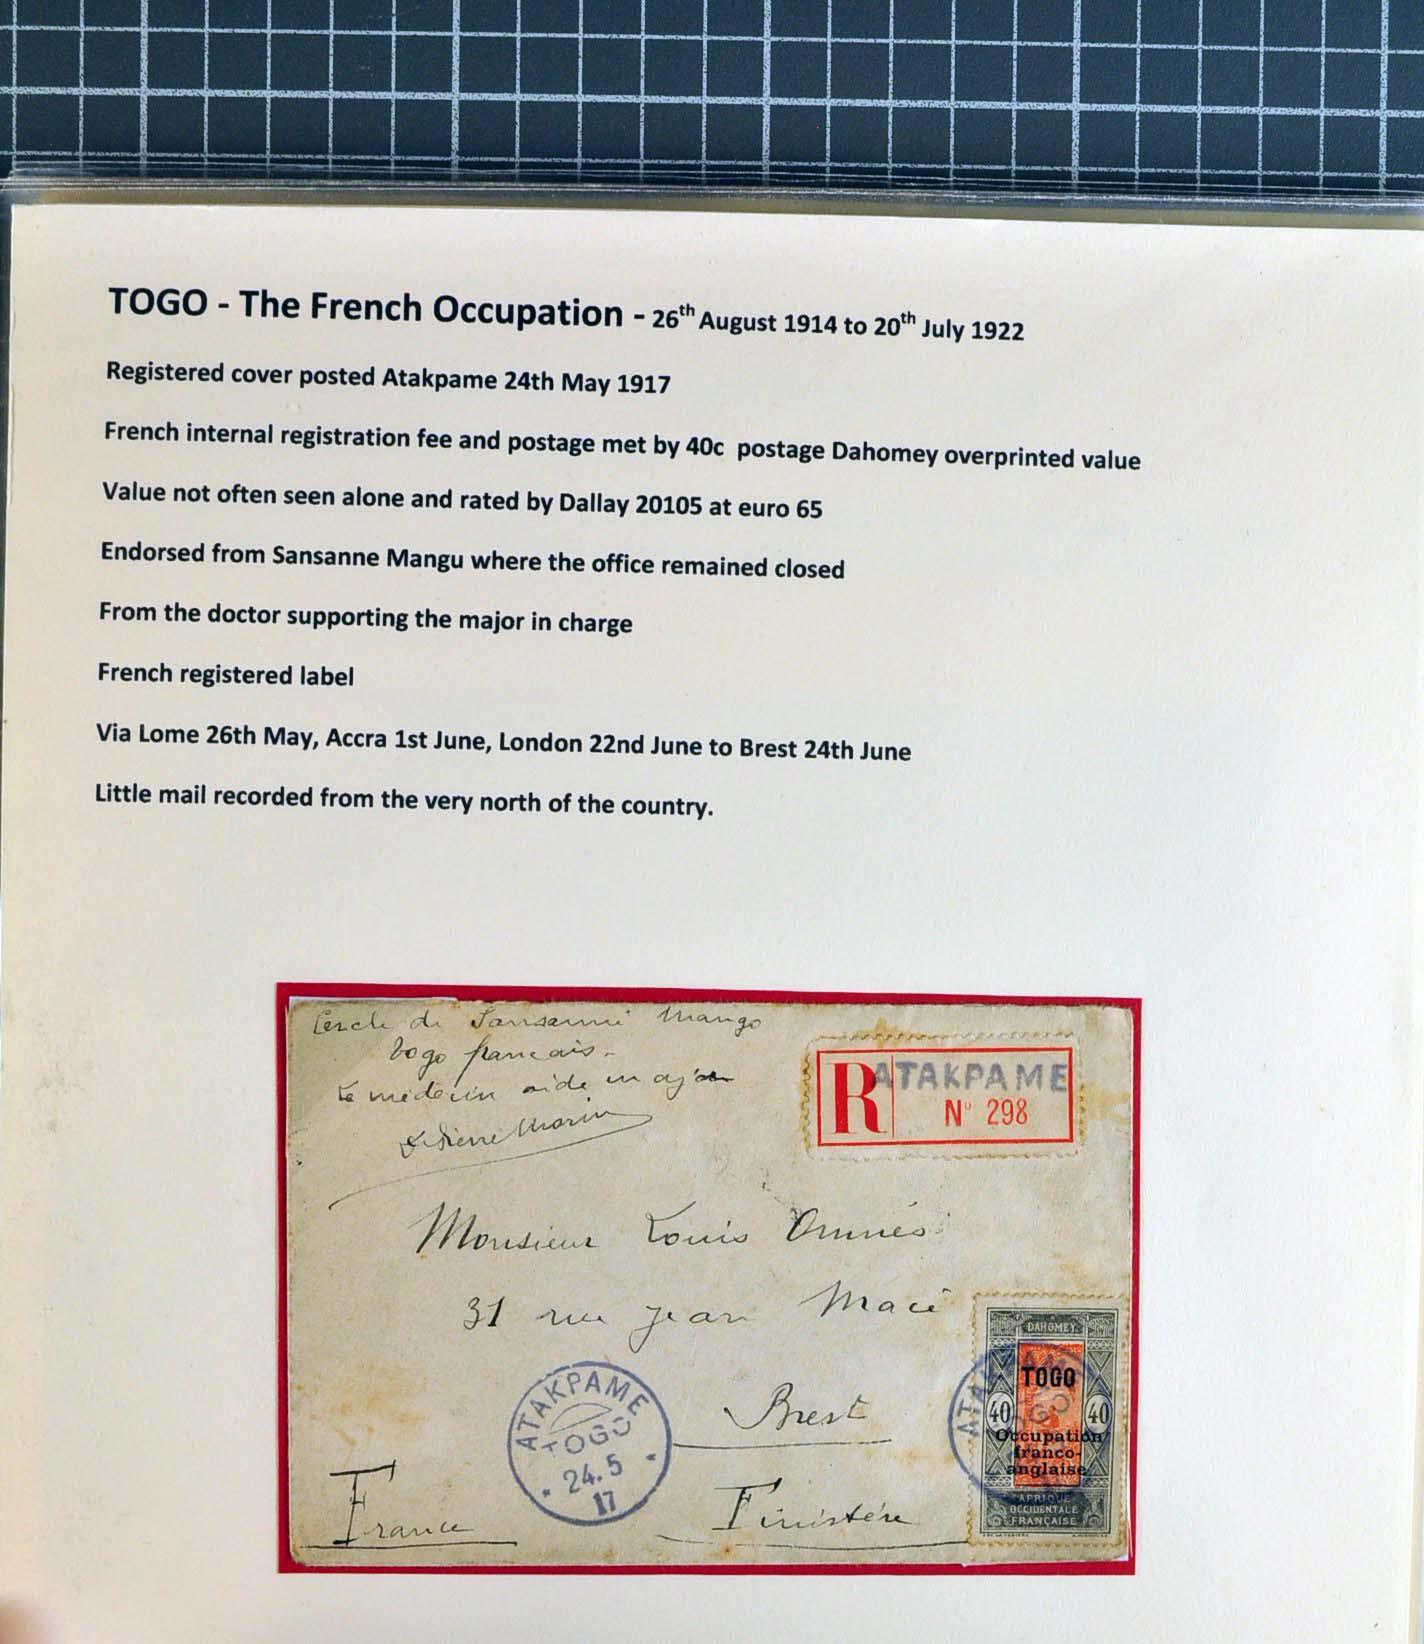 TOGO - The French Occupation - 26th August 1914 to 20th July 1922
Registered cover posted Atakpame 24th May 1917
French internal registration fee and postage met by 40c postage Dahomey overprinted value
Value not often seen alone and rated by Dallay 20105 at euro 65
Endorsed from Sansanne Mangu where the office remained closed
From the doctor supporting the major in charge
French registered label
Via Lome 26th May, Accra 1st June, London 22nd June to Brest 24th June
Little mail recorded from the very north of the country.
Cercle de Sansanné Mango
Togo français
Le médecin aide major
Pierre Morin
R ATAKPAME
No 298
Monsieur Louis Omnés
31 rue Jean Macé
Brest
Finistère
France
ATAKPAME
TOGO
24.5
17
DAHOMEY
TOGO
40 40
Occupation
franco-
anglaise
AFRIQUE
OCCIDENTALE
FRANÇAISE